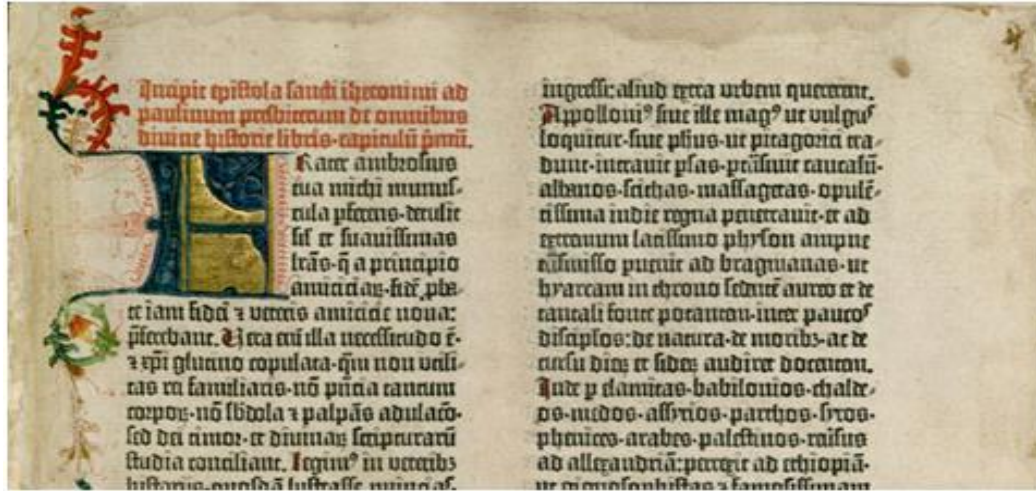 Incipit epistola sancti iheronimi ad
paulinum presbiterum de omnibus
divine historie libris·capitulū p̄mū.
Frater ambrosius
tua michi munus-
cula ꝑferens·detulit
sil' et suauissimas
lr̄as·q̄ a principio
amiciciaꝝ·fidē ꝓba-
te iam fidei ⁊ veteris amicicie noua:
p̄ferebant. Vera eni illa necessitudo ē·
⁊ xp̄i glutino copulata·qm̄ non vtili-
tas rei familiaris·nō pn̄cia tantum
corpoꝝ·nō sb̄dola ⁊ palpās adulacō·
sed dei timor·et diuinaꝝ scripturarū
studia conciliant. Legim⁹ in veteribꝫ
historijs·quosdā lustrasse
ingressi: aliud extra urbem quererent.
Appolloni⁹ siue ille mag⁹ ut vulgus
loquitur·siue ph̄us·ut pitagorici tra-
dunt·intrauit ꝑsas·ꝑtrāsiuit caucasū·
albanos·scithas·massagetas·opulē-
tissima indie regna penetrauit·et ad
extremum latissimo physon ampne
trāsmisso ꝑuenit ad bragmanas·ut
hyarcam in throno sedentē aureo et de
tantali fonte potantem·inter paucos
discipl̄os: de natura·de moribꝫ·ac de
cursu dieꝝ et sideꝝ audiret docentem.
Inde ꝑ elamitas·babilonios·chalde-
os·medos·assyrios·parthos·syros·
phenices·arabes·palestinos·reuersus
ad allexandriā: perrexit ad ethiopiā·
ut gignosophistas ⁊ famosissimam